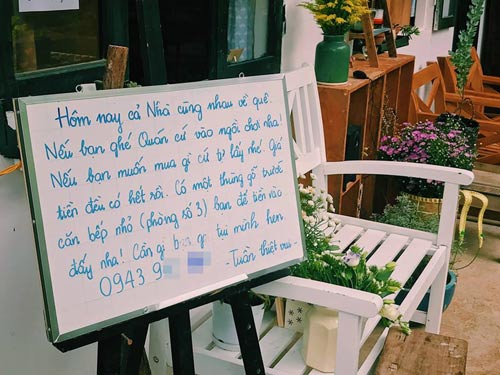 Hôm nay cả Nhà cùng nhau về quê.
Nếu bạn ghé Quán cứ vào ngồi chơi nha!
Nếu bạn muốn mua gì cứ tự lấy nhé. Giá
tiền đều có hết rồi. Có một thùng gỗ trước
căn bếp nhỏ (phòng số 3) bạn để tiền vào
đấy nha! Cần gì gọi tụi mình hen
0943 9 - Tuần thiệt vui -